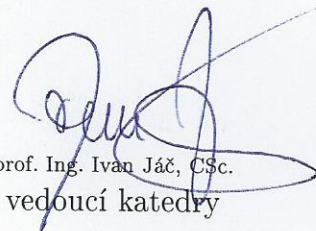 prof. Ing. Ivan Jáč, CSc.
vedoucí katedry